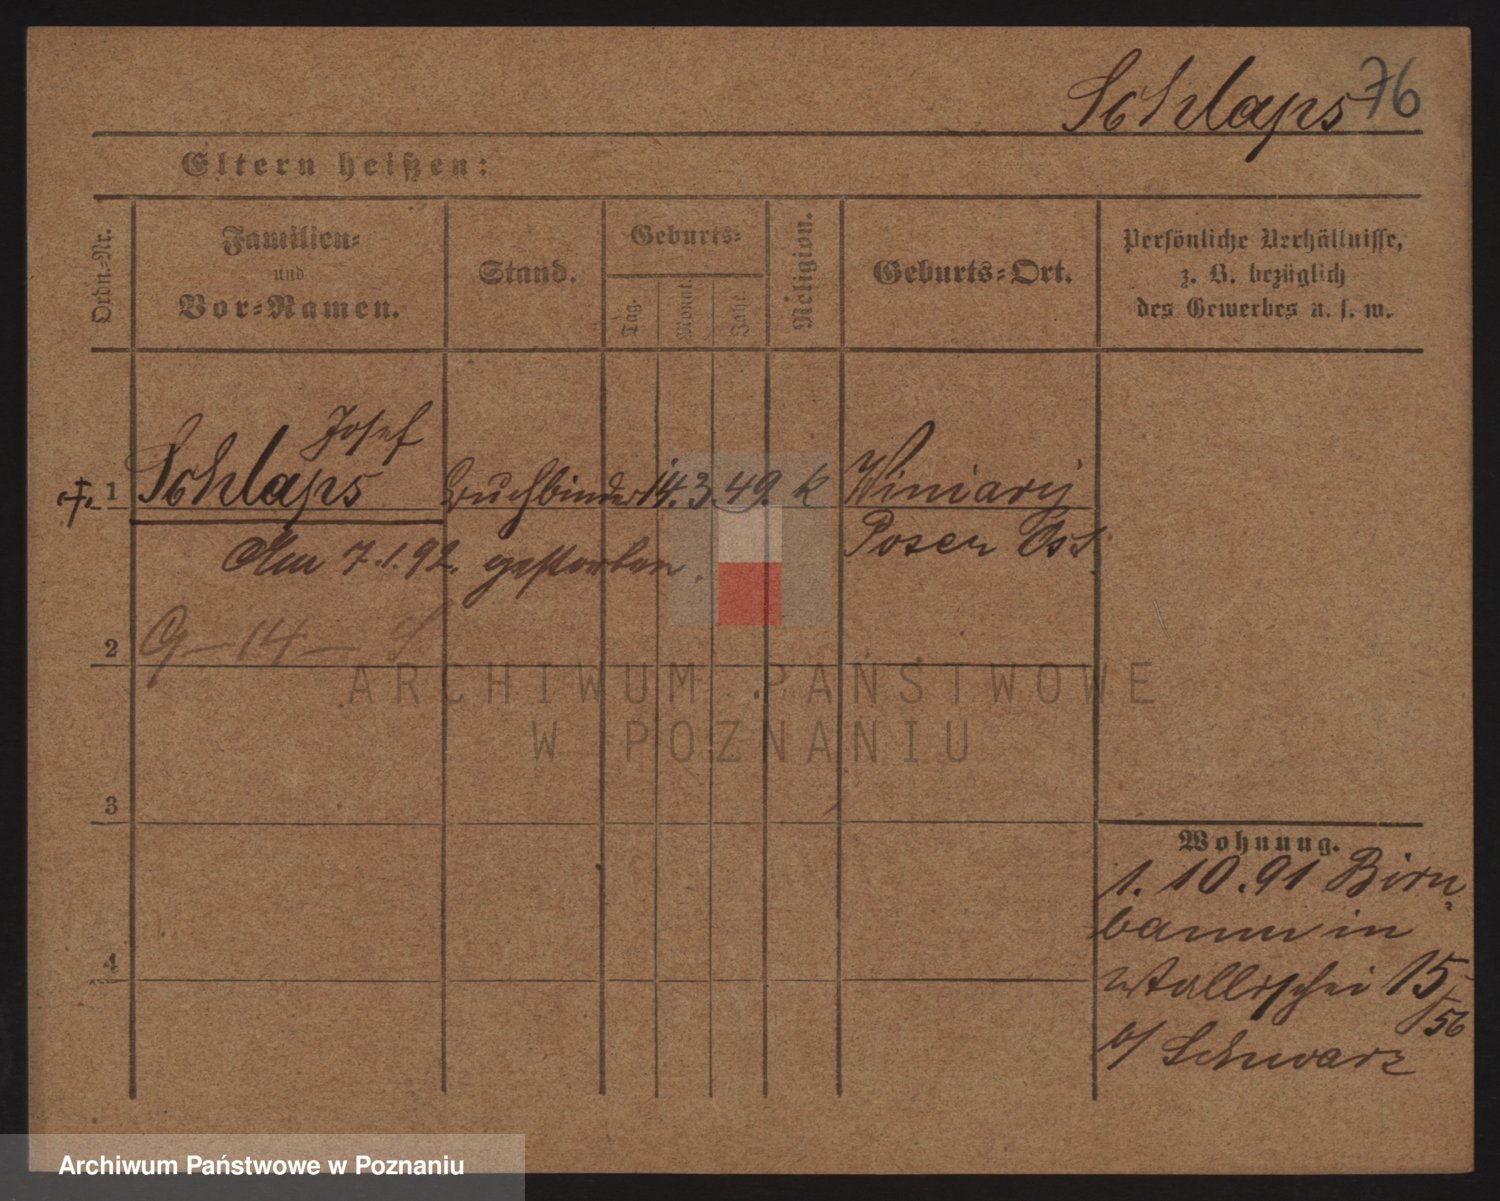 Schlaps 76
Eltern heißen:
Ordn.-Nr.
Familien-
und
Vor-Namen.
Stand.
Geburts-
Tag.
Monat.
Jahr.
Religion.
Geburts-Ort.
Persönliche Verhältnisse,
z. B. bezüglich
des Gewerbes u. s. w.
Josef
1 Schlaps Buchbinder 14. 3. 49. k Winiary
Posen Ost
Am 7.1.92. gestorben.
2 G-14-
ARCHIWUM PAŃSTWOWE
W POZNANIU
3
Wohnung.
1. 10. 91 Birn-
baum in
Wallischei 15/56
b/ Schwarz
4
Archiwum Państwowe w Poznaniu